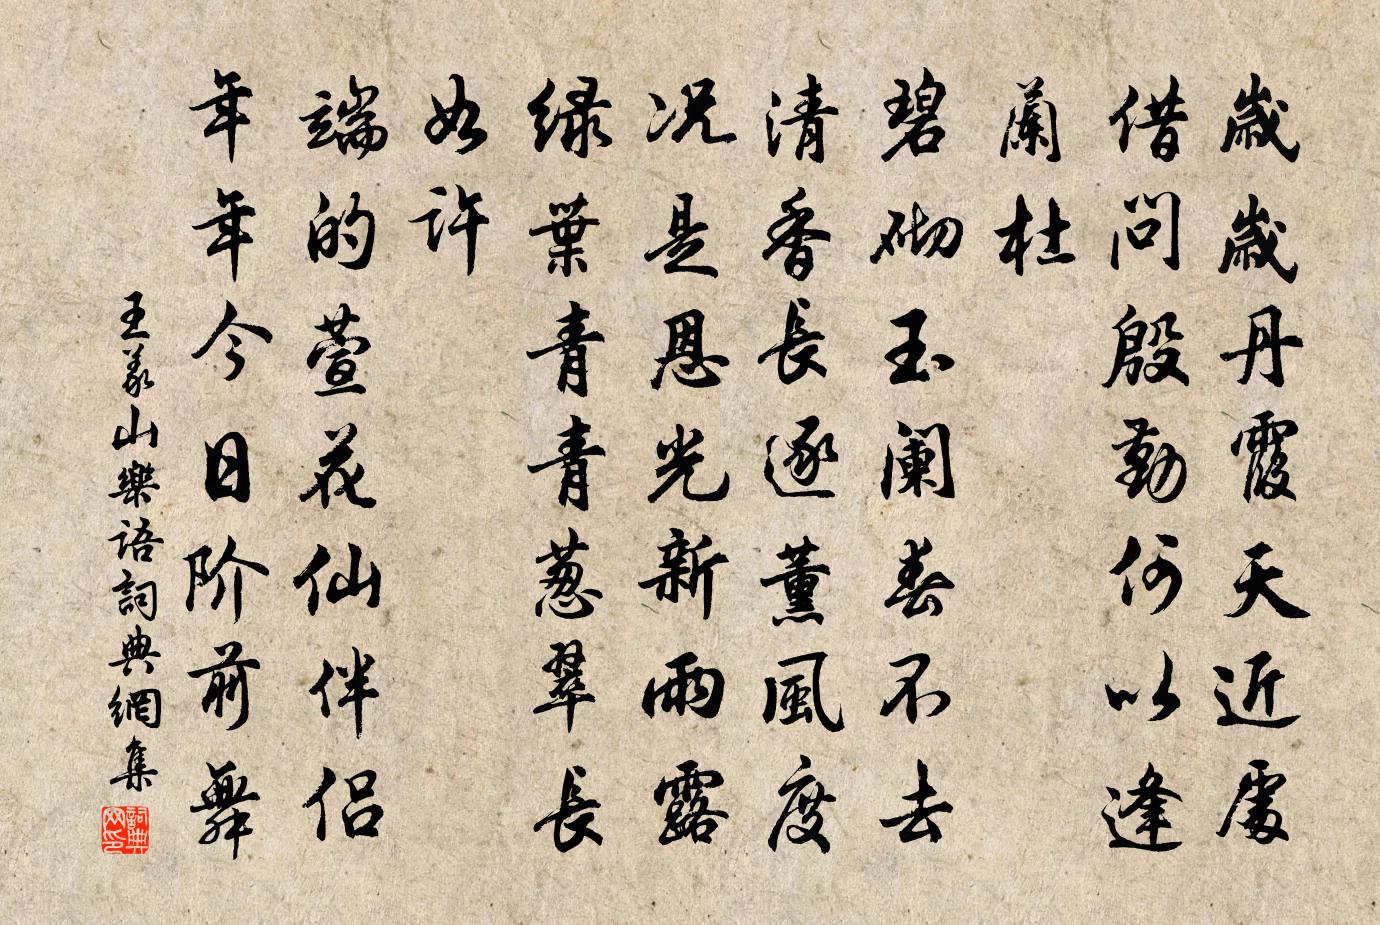 歲歲丹霞天近處
借問殷勤何以逢
蘭杜
碧砌玉阑春不去
清香長逐薰風度
况是恩光新雨露
绿葉青青葱翠長
如许
端的萱花仙伴侣
年年今日阶前舞
王義山樂语詞典網集
詞典网印